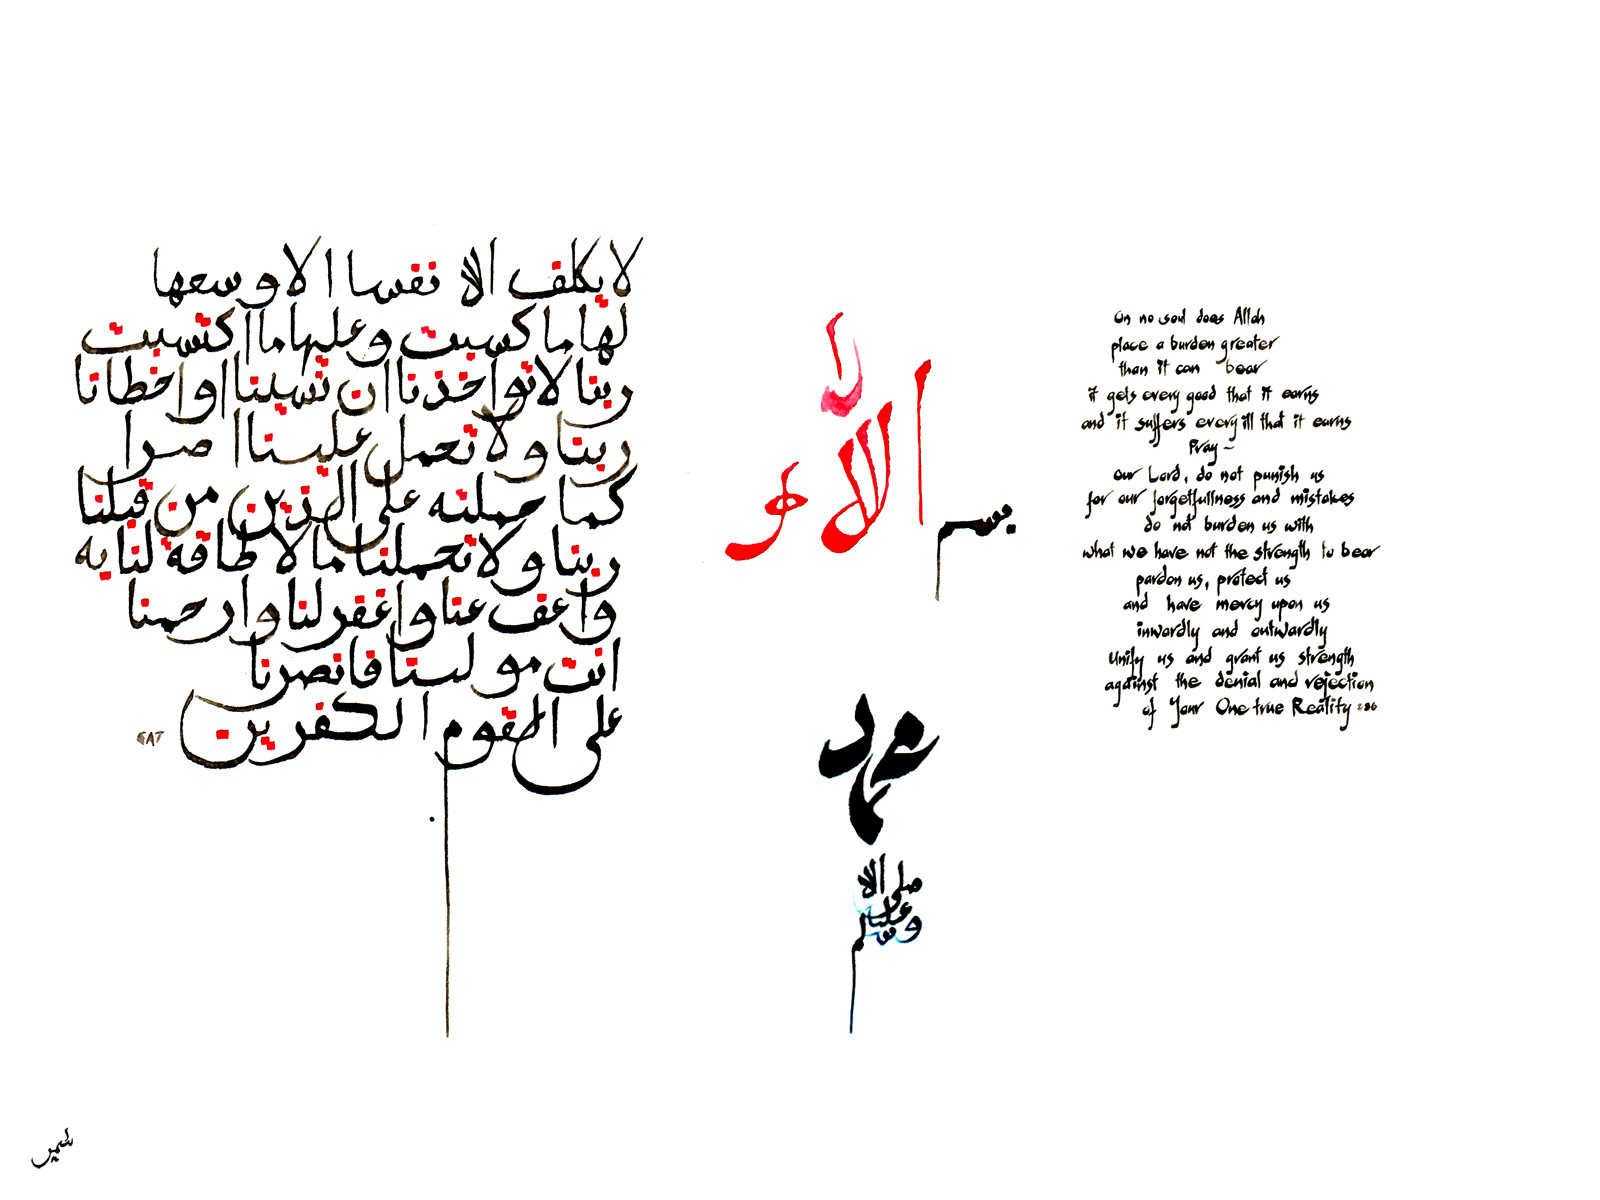 لا يكلف الله نفسا الا وسعها
لها ما كسبت وعليها ما اكتسبت
ربنا لا تواخذنا ان نسينا او اخطانا
ربنا ولا تحمل علينا اصرا
كما حملته على الذين من قبلنا
ربنا ولا تحملنا ما لا طاقة لنا به
واعف عنا واغفر لنا وارحمنا
انت مولينا فانصرنا
على القوم الكفرين
بسم الله
محمد
صلى الله
عليه
وسلم
On no soul does Allah
place a burden greater
than it can bear
it gets every good that it earns
and it suffers every ill that it earns
Pray ~
Our Lord, do not punish us
for our forgetfullness and mistakes
do not burden us with
what we have not the strength to bear
pardon us, protect us
and have mercy upon us
inwardly and outwardly
Unify us and grant us strength
against the denial and rejection
of Your One true Reality 2:86